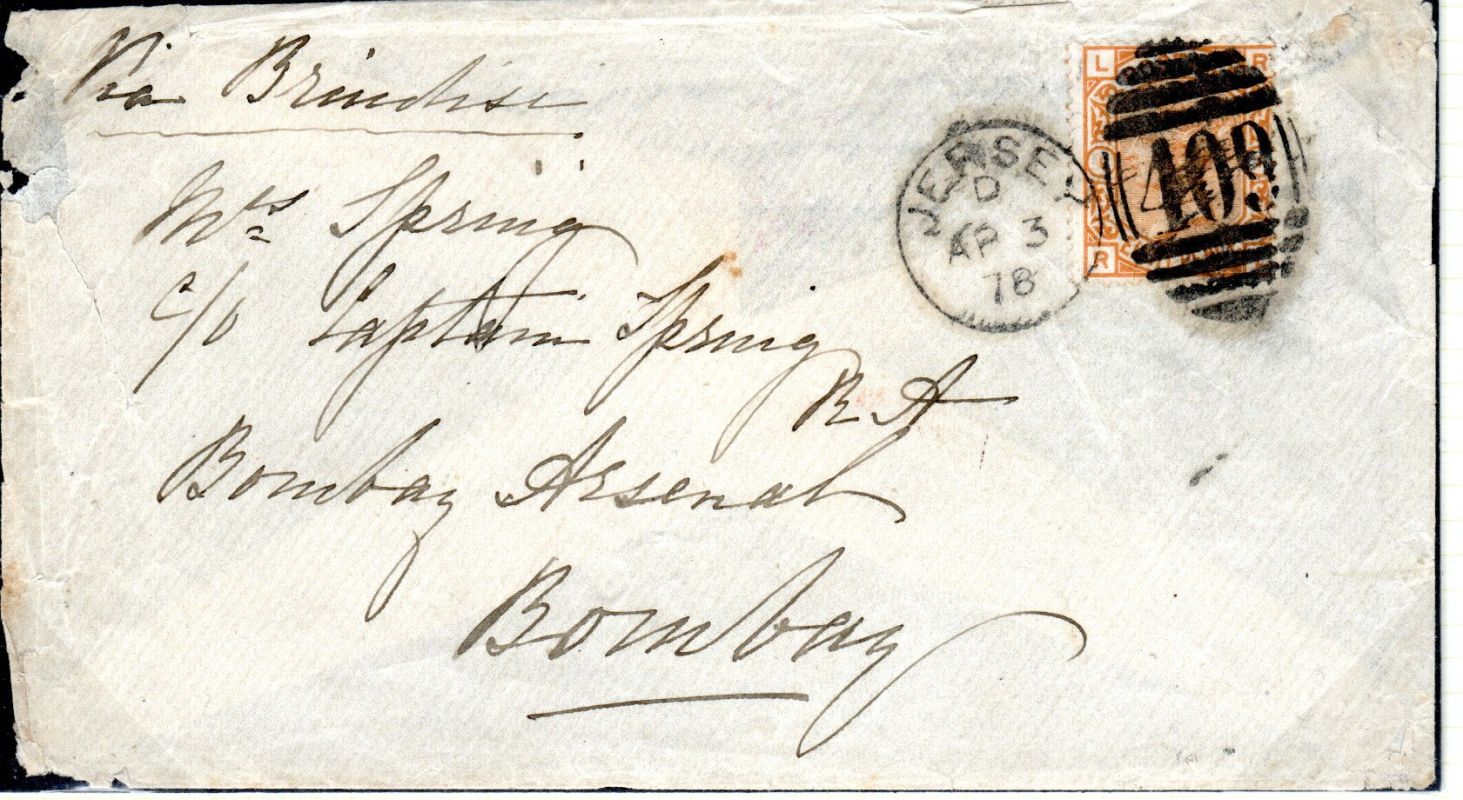 Via Brindisi
Mrs Spring
c/o Captain Spring
R A
Bombay Arsenal
Bombay
JERSEY
D
AP 3
78
409
L R
R